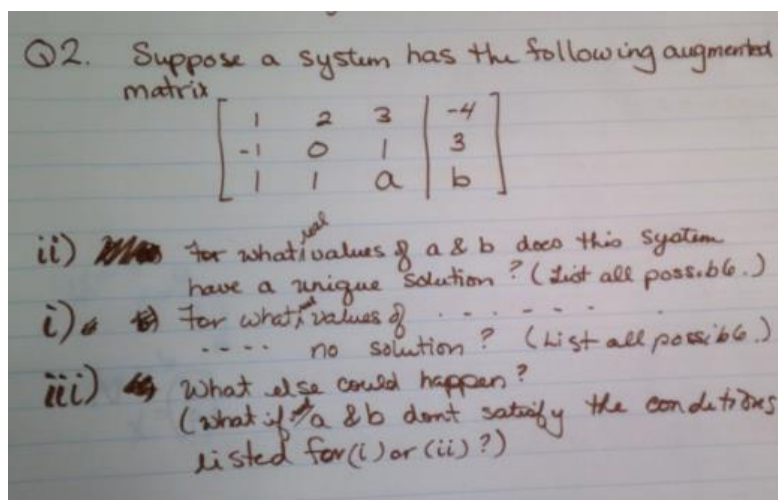 Q2. Suppose a system has the following augmented
matrix
1 2 3 | -4
-1 0 1 | 3
1 1 a | b
real
ii) For what values of a & b does this system
have a unique solution? (List all possible.)
i) For what real values of . . . . . . .
. . . . no solution? (List all possible.)
iii) What else could happen?
(what if a & b dont satisfy the conditions
listed for (i) or (ii)?)